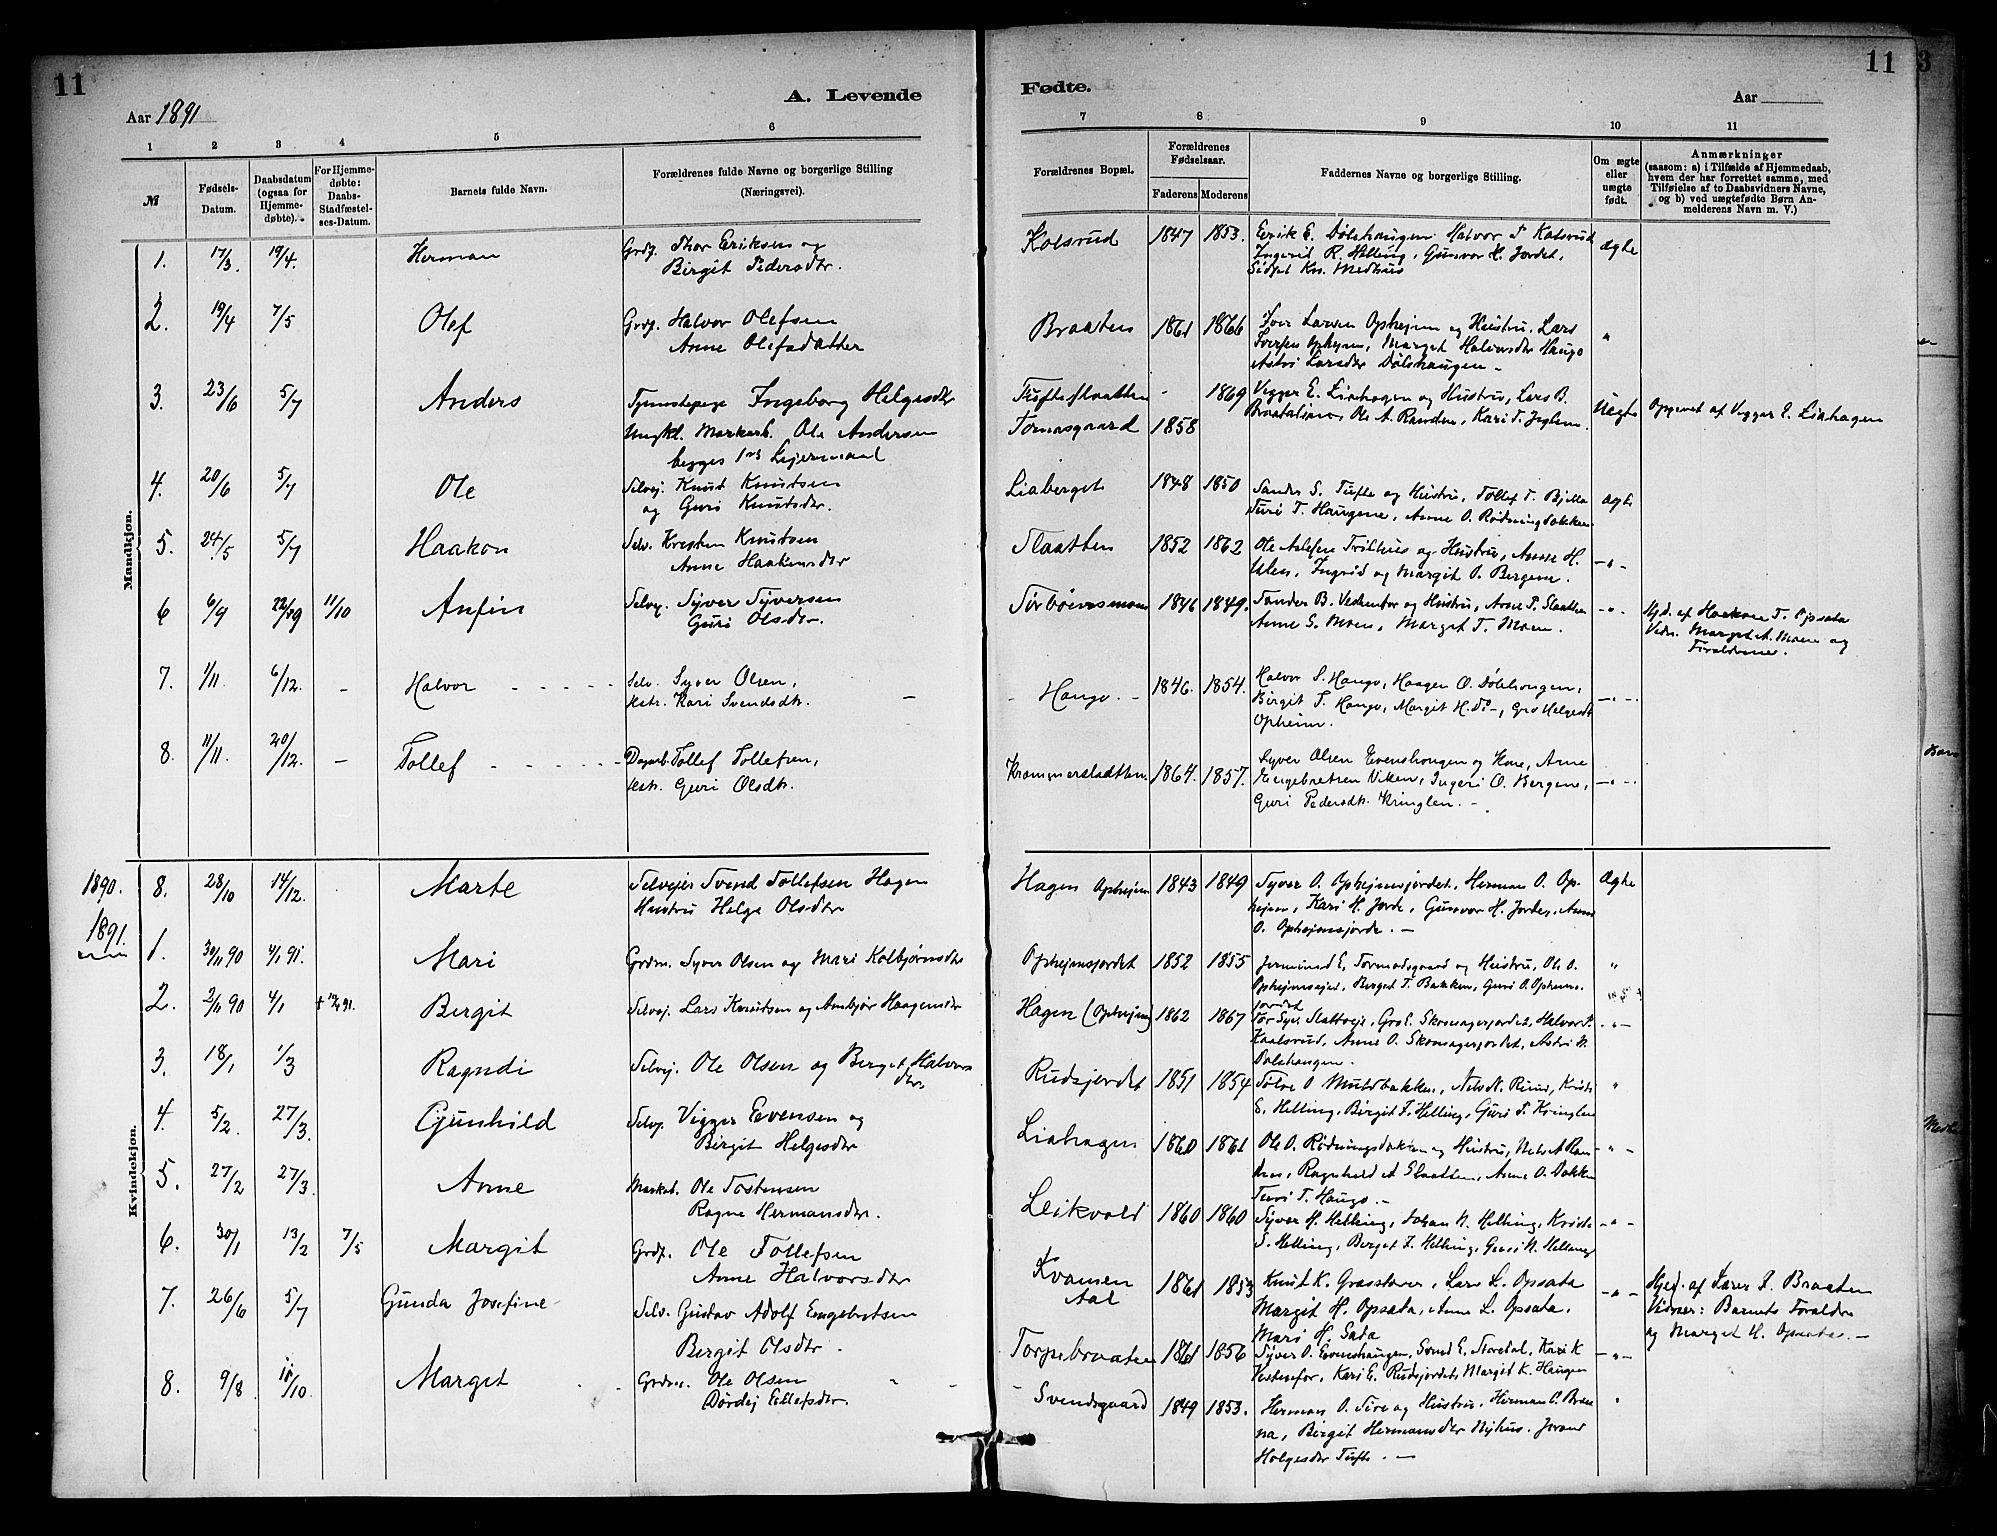 11
Aar 1891
A. Levende
1 2 3 4 5 6
№
Fødsels-Datum.
Daabsdatum (ogsaa for Hjemme-døbte).
For Hjemme-døbte: Daabs-Stadfæstel-ses-Datum.
Barnets fulde Navn.
Forældrenes fulde Navne og borgerlige Stilling
(Næringsvei).
Mandkjøn.
1. 17/3. 19/4. Herman Grdf. Thor Eriksen og
Birgit Pedersdtr.
2. 19/4 7/5 Olef Grdf. Halvor Olefsen
Anne Olefsdatter
3. 23/6 5/7 Anders Ingeborg Helgesdtr
Ungkl. Ole Andersen
begges 1ste Lejermaal
4. 20/6 5/7 Ole Selvej. Knut Knutsen
og Guri Knutsdtr.
5. 24/5 5/7 Haakon Selv. Kresten Knutsen
Anne Haakensdtr
6 6/9 11/10 Anfin Selvej. Syver Syversen
Guri Olsdtr.
7. 1/11 6/12. - Halvor Selv. Syver Olsen,
Hstr. Kari Svendsdtr.
8. 11/11. 20/12. - Tollef Dagarb. Tollef Tollefsen,
Hstr. Guri Olsdtr.
Kvindekjøn.
1890. 8. 28/10 14/12. Marte Selvejer Svend Tollefsen Hagen
Hustru Helga Olsdtr
1891. 1. 30/11 90 4/1 91. Mari Grdm. Syver Olsen og Mari Kolbjørnsdtr
2. 2/11 90 4/1 Bergit Selvej. Lars Knutsen og Ambjør Haagensdtr
3. 18/1 1/3 Ragndi Selvej. Ole Olsen og Berget Halvors
dtr.
4. 5/2. 27/3. Gunhild Selvej. Vigger Evensen og
Birgit Helgesdtr
5. 27/2 27/3. Anne Ole Tostensen
Ragne Hermansdtr.
6. 30/1 13/2 7/5 Margit Grdf. Ole Tollefsen
Anne Halvorsdtr
7. 26/6 5/7 Gunda Josefine Selv. Gustav Adolf Engebretsen
Birgit Olsdtr.
8. 9/8 /10. Marget Grdm. Ole Olsen
Dørdej Ellefsdtr.
Fødte.
Aar
11
3
7 8 9 10 11
Forældrenes Bopæl.
Forældrenes Fødselsaar.
Faderens Moderens
Faddernes Navne og borgerlige Stilling.
Om ægte eller uægte født.
Anmærkninger
(saasom: a) i Tilfælde af Hjemmedaab,
hvem der har forrettet samme, med
Tilføielse af to Daabsvidners Navne,
og b) ved uægtefødte Børn An-
melderens Navn m. V.)
Kolsrud 1847 1853. Eerik E. Dølshaugen. Halvor T. Kolsrud Ægte
Ingerid R. Helling, Gunvor H. Jordet,
Sidsel Kn. Medhus
Braaten 1861 1866 Iver Larsen Ophejm og Hustru, Lars "
Iversen Ophejm, Marget Halvorsdtr Haugo
Astri Larsdtr Dølshaugen -
Tufteslaatten - 1869 Vegger E. Liahagen og Hustru, Lars B. Uegte Opgivet af Vegger E. Liahagen
Tormosgaard 1858 Ole A. Randen, Kari T.
Liaberget 1848 1850 Sander S. Tufte og Hustru, Tollef T. Bjella Ægte
Turi T. Haugene, Anne O. Rødningsdokken
Slaatten 1852 1862 Ole Trolhus og Hustru, Anne H. -"-
Ulen, Ingrid og Margit O. Bergene.
Sørbøensmoen 1846 1849. Sander B. og Hustru, Arne P. Slaatten -"- Hjd. af Haakon T. Opsata
Anne S. Moen, Marget T. Moen. Vidn. Marget A. Moen og
Forældrene.
Haugo. - 1846. 1854. Halvor S. Haugo, Haagen O. Dølshaugen, -"-
Birgit T. Haugo, Margit H. Do-, Gro Helgesdt
Opheim.
Krammerslaatten 1864. 1857. Syver Olsen Evenshaugen og Kone, Arne
Engebretsen Viken, Ingeri O. Bergene, -"-
Guri Pedersdtr. Kringlen. -
Hagen Ophejm 1843 1849 Syver O. Ophejmsjordet, Herman O. Op- Ægte
hejm, Kari H. Jorde, Gunvor H. Jordet, Anne
O. Ophejmsjorde. -
Ophejmsjordet 1852 1855 Jermund E. Tormodsgaard og Hustru, Ole O. "
Berget T. Bakken, Guri O. Ophems-
jordet
Hagen (Ophejm) 1862 1867 Tor Syv. Gro E. Skomagerjordet, Halvor T. -"-
Kaalsrud, Anne O. Skomagerjordet, Astri N.
Dølshaugen.
Rudsjordet 1851 1854 Tølve O. Muldbakken, Nels N. Ruud, Kristi "
E. Helling, Birgit T. Helling, Guri P. Kringlen
Liahagen 1860 1861 Ole O. Rødningsdokken og Hustru, Nels A Ran- -"-
den, Ragnhild A Slaatten, Anne O. Dokken
Turi T. Haugo. -
Leikvold 1860 1860 Syver H. Helling, Johan N. Helling, Kristi -"-
S. Helling, Berget T. Helling, N. Helling
Kvamen 1861 1853 Knut K. Lars L. Opsata -"- Hjed. af Lærer T. Braaten
Aal Margit H. Opsata, Anne L. Opsata, Vidner: Barnets Foræ
Mari H. Sata og Marget H. Opsata. -
Torpebraaten 1861 1856 Syver O. Evenshaugen, Svend E. Storedal, Kari K -"-
Vestenfor, Kari E. Rudsjordet, Margit K. Haugen
Svendsgaard 1849 1853. Herman O. Tire og Hustru, Herman O. Braa "
na, Birgit Hermansdtr Nyhus.
Helgesdtr Tufte. -